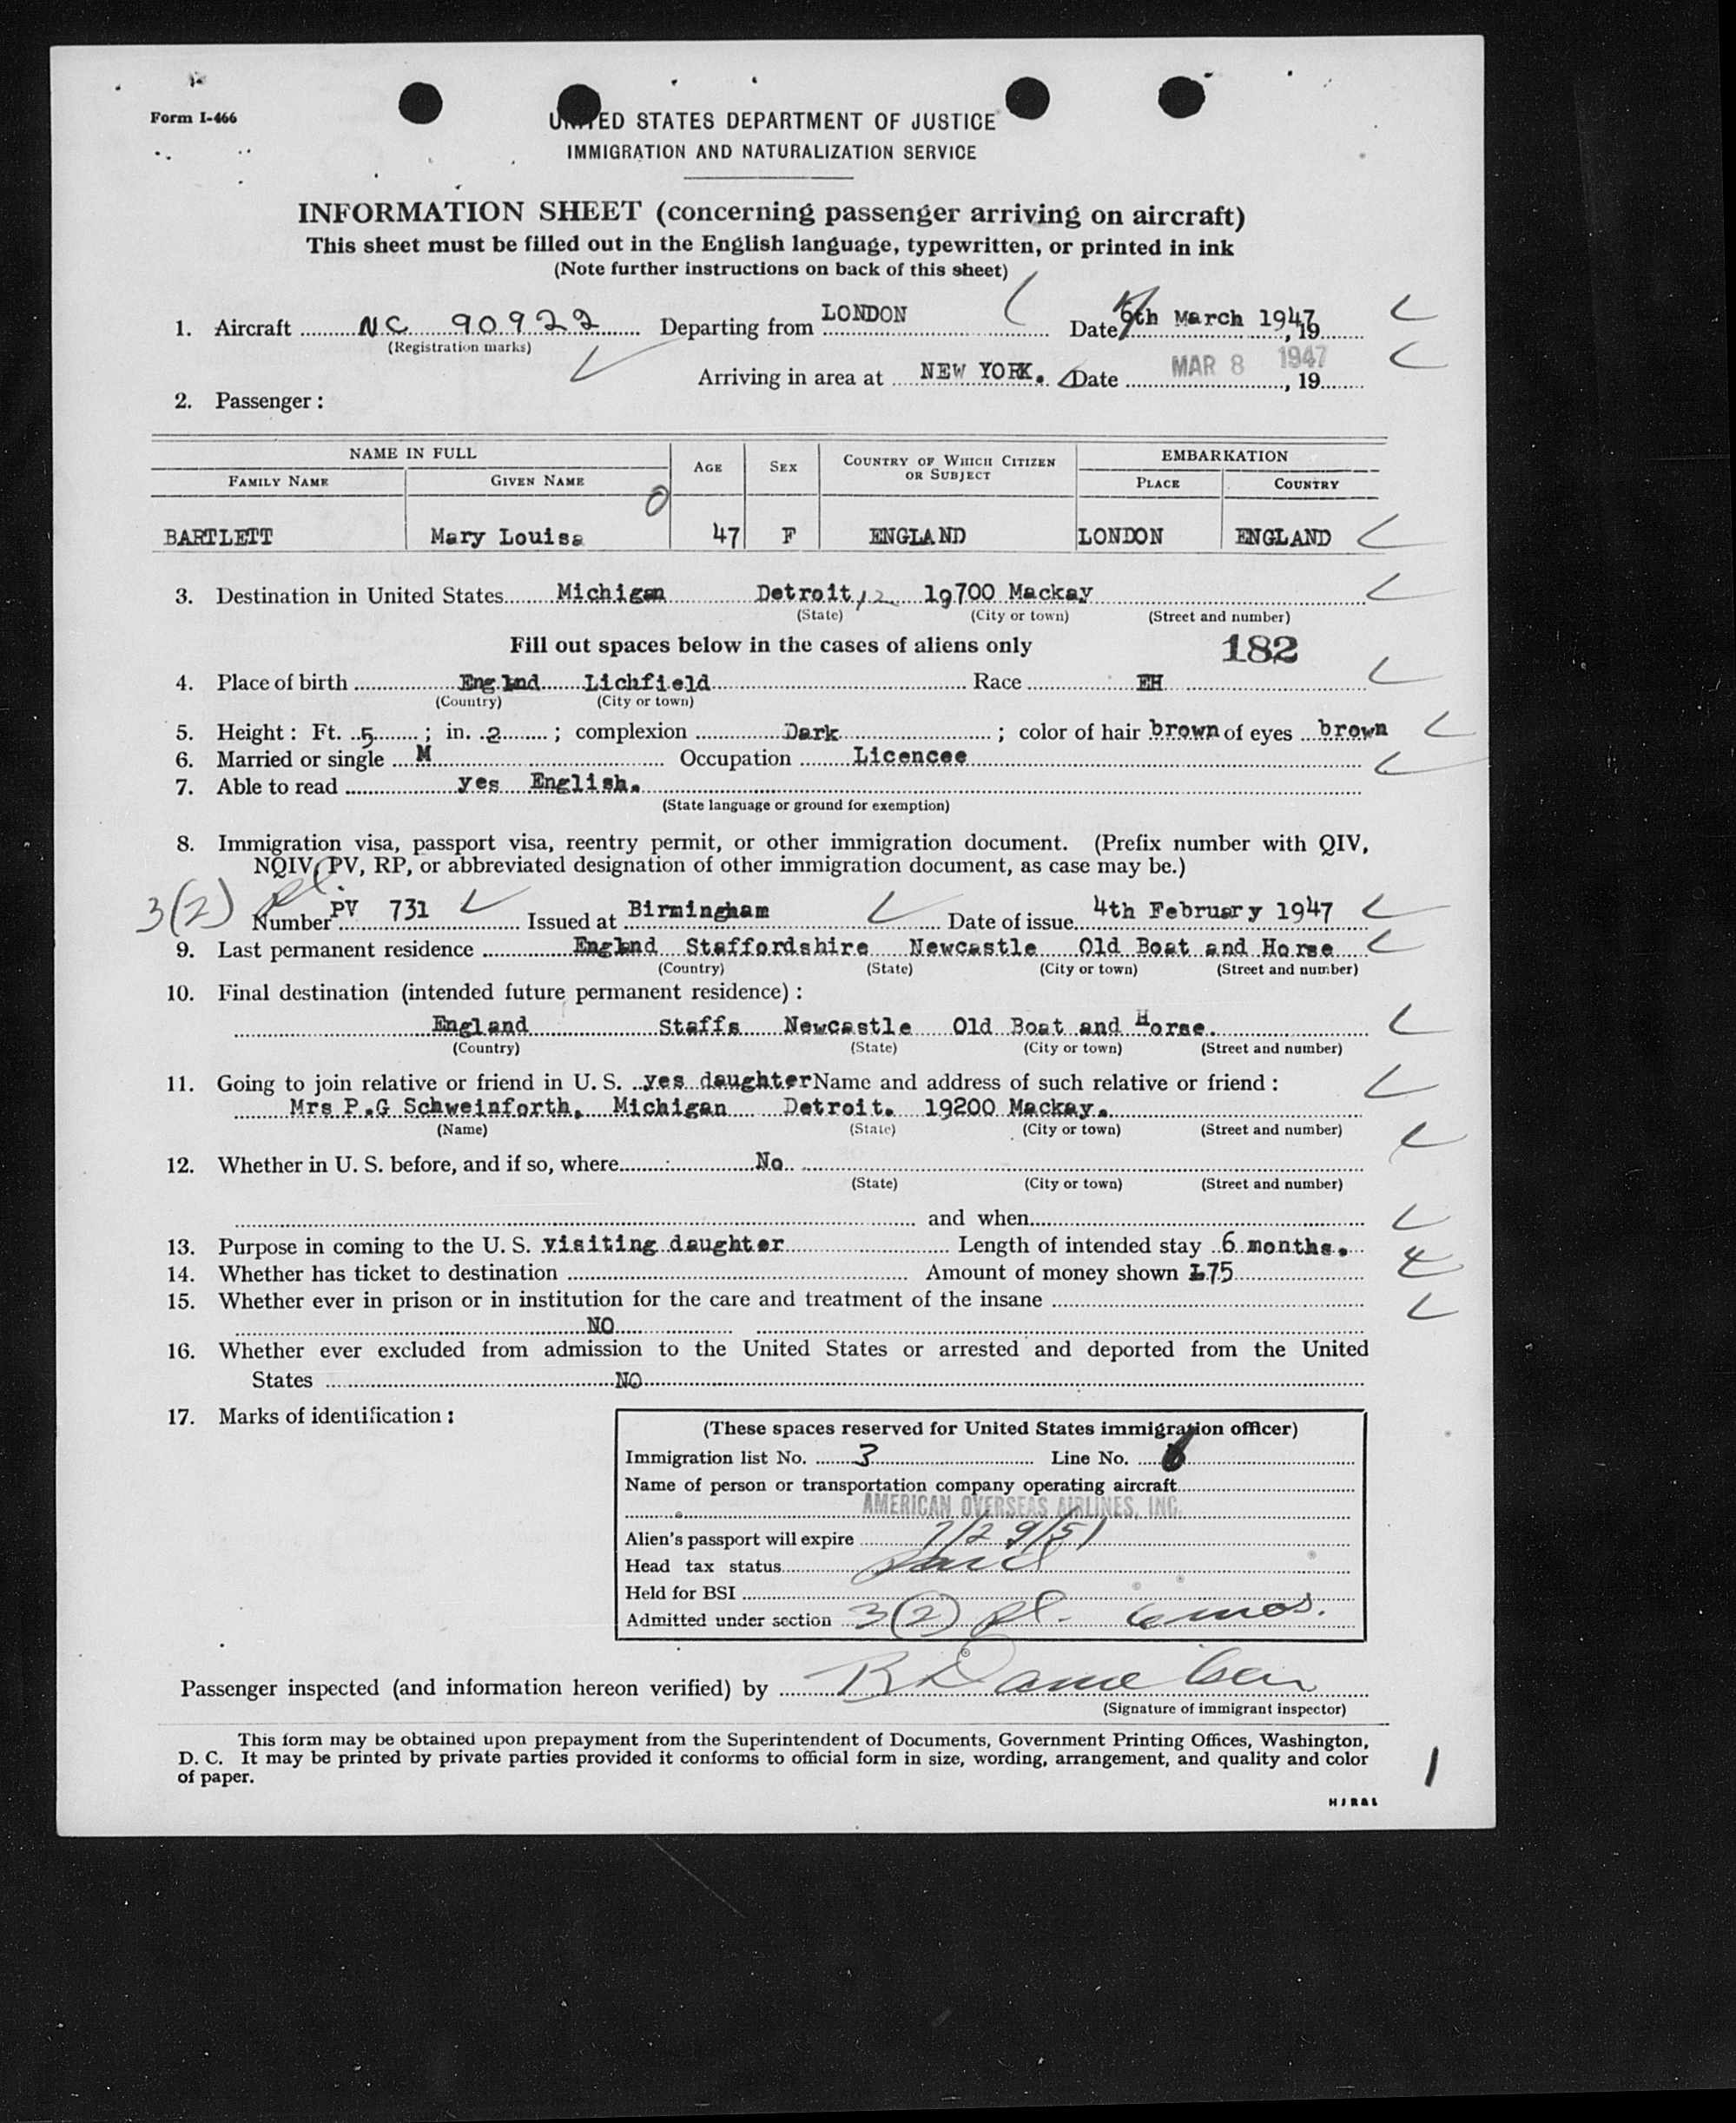 Form I-466
UNITED STATES DEPARTMENT OF JUSTICE
IMMIGRATION AND NATURALIZATION SERVICE
INFORMATION SHEET (concerning passenger arriving on aircraft)
This sheet must be filled out in the English language, typewritten, or printed in ink
(Note further instructions on back of this sheet)
1. Aircraft NC 90922 Departing from LONDON Date 6th March 1947, 19
(Registration marks)
Arriving in area at NEW YORK. Date MAR 8 1947, 19
2. Passenger:
NAME IN FULL AGE SEX COUNTRY OF WHICH CITIZEN OR SUBJECT EMBARKATION
FAMILY NAME GIVEN NAME PLACE COUNTRY
BARTLETT Mary Louisa 47 F ENGLAND LONDON ENGLAND
3. Destination in United States Michigan Detroit, 12 19700 Mackay
(State) (City or town) (Street and number)
Fill out spaces below in the cases of aliens only 182
4. Place of birth Englnd Lichfield Race EH
(Country) (City or town)
5. Height: Ft. 5; in. 2; complexion Dark; color of hair brown of eyes brown
6. Married or single M Occupation Licencee
7. Able to read yes English.
(State language or ground for exemption)
8. Immigration visa, passport visa, reentry permit, or other immigration document. (Prefix number with QIV,
NQIV, PV, RP, or abbreviated designation of other immigration document, as case may be.)
3(2) pl.
Number PV 731 Issued at Birmingham Date of issue 4th February 1947
9. Last permanent residence Englnd Staffordshire Newcastle Old Boat and Horse
(Country) (State) (City or town) (Street and number)
10. Final destination (intended future permanent residence):
England Staffs Newcastle Old Boat and Horse.
(Country) (State) (City or town) (Street and number)
11. Going to join relative or friend in U. S. yes daughter Name and address of such relative or friend:
Mrs P.G Schweinforth, Michigan Detroit. 19200 Mackay.
(Name) (State) (City or town) (Street and number)
12. Whether in U. S. before, and if so, where No
(State) (City or town) (Street and number)
and when
13. Purpose in coming to the U. S. visiting daughter Length of intended stay 6 months.
14. Whether has ticket to destination Amount of money shown £75
15. Whether ever in prison or in institution for the care and treatment of the insane
NO
16. Whether ever excluded from admission to the United States or arrested and deported from the United
States NO
17. Marks of identification:
(These spaces reserved for United States immigration officer)
Immigration list No. 3 Line No. 6
Name of person or transportation company operating aircraft
AMERICAN OVERSEAS AIRLINES, INC.
Alien's passport will expire 7/29/51
Head tax status Paid
Held for BSI
Admitted under section 3(2) pl. 6 mos.
Passenger inspected (and information hereon verified) by
(Signature of immigrant inspector)
This form may be obtained upon prepayment from the Superintendent of Documents, Government Printing Offices, Washington,
D. C. It may be printed by private parties provided it conforms to official form in size, wording, arrangement, and quality and color
of paper.
1